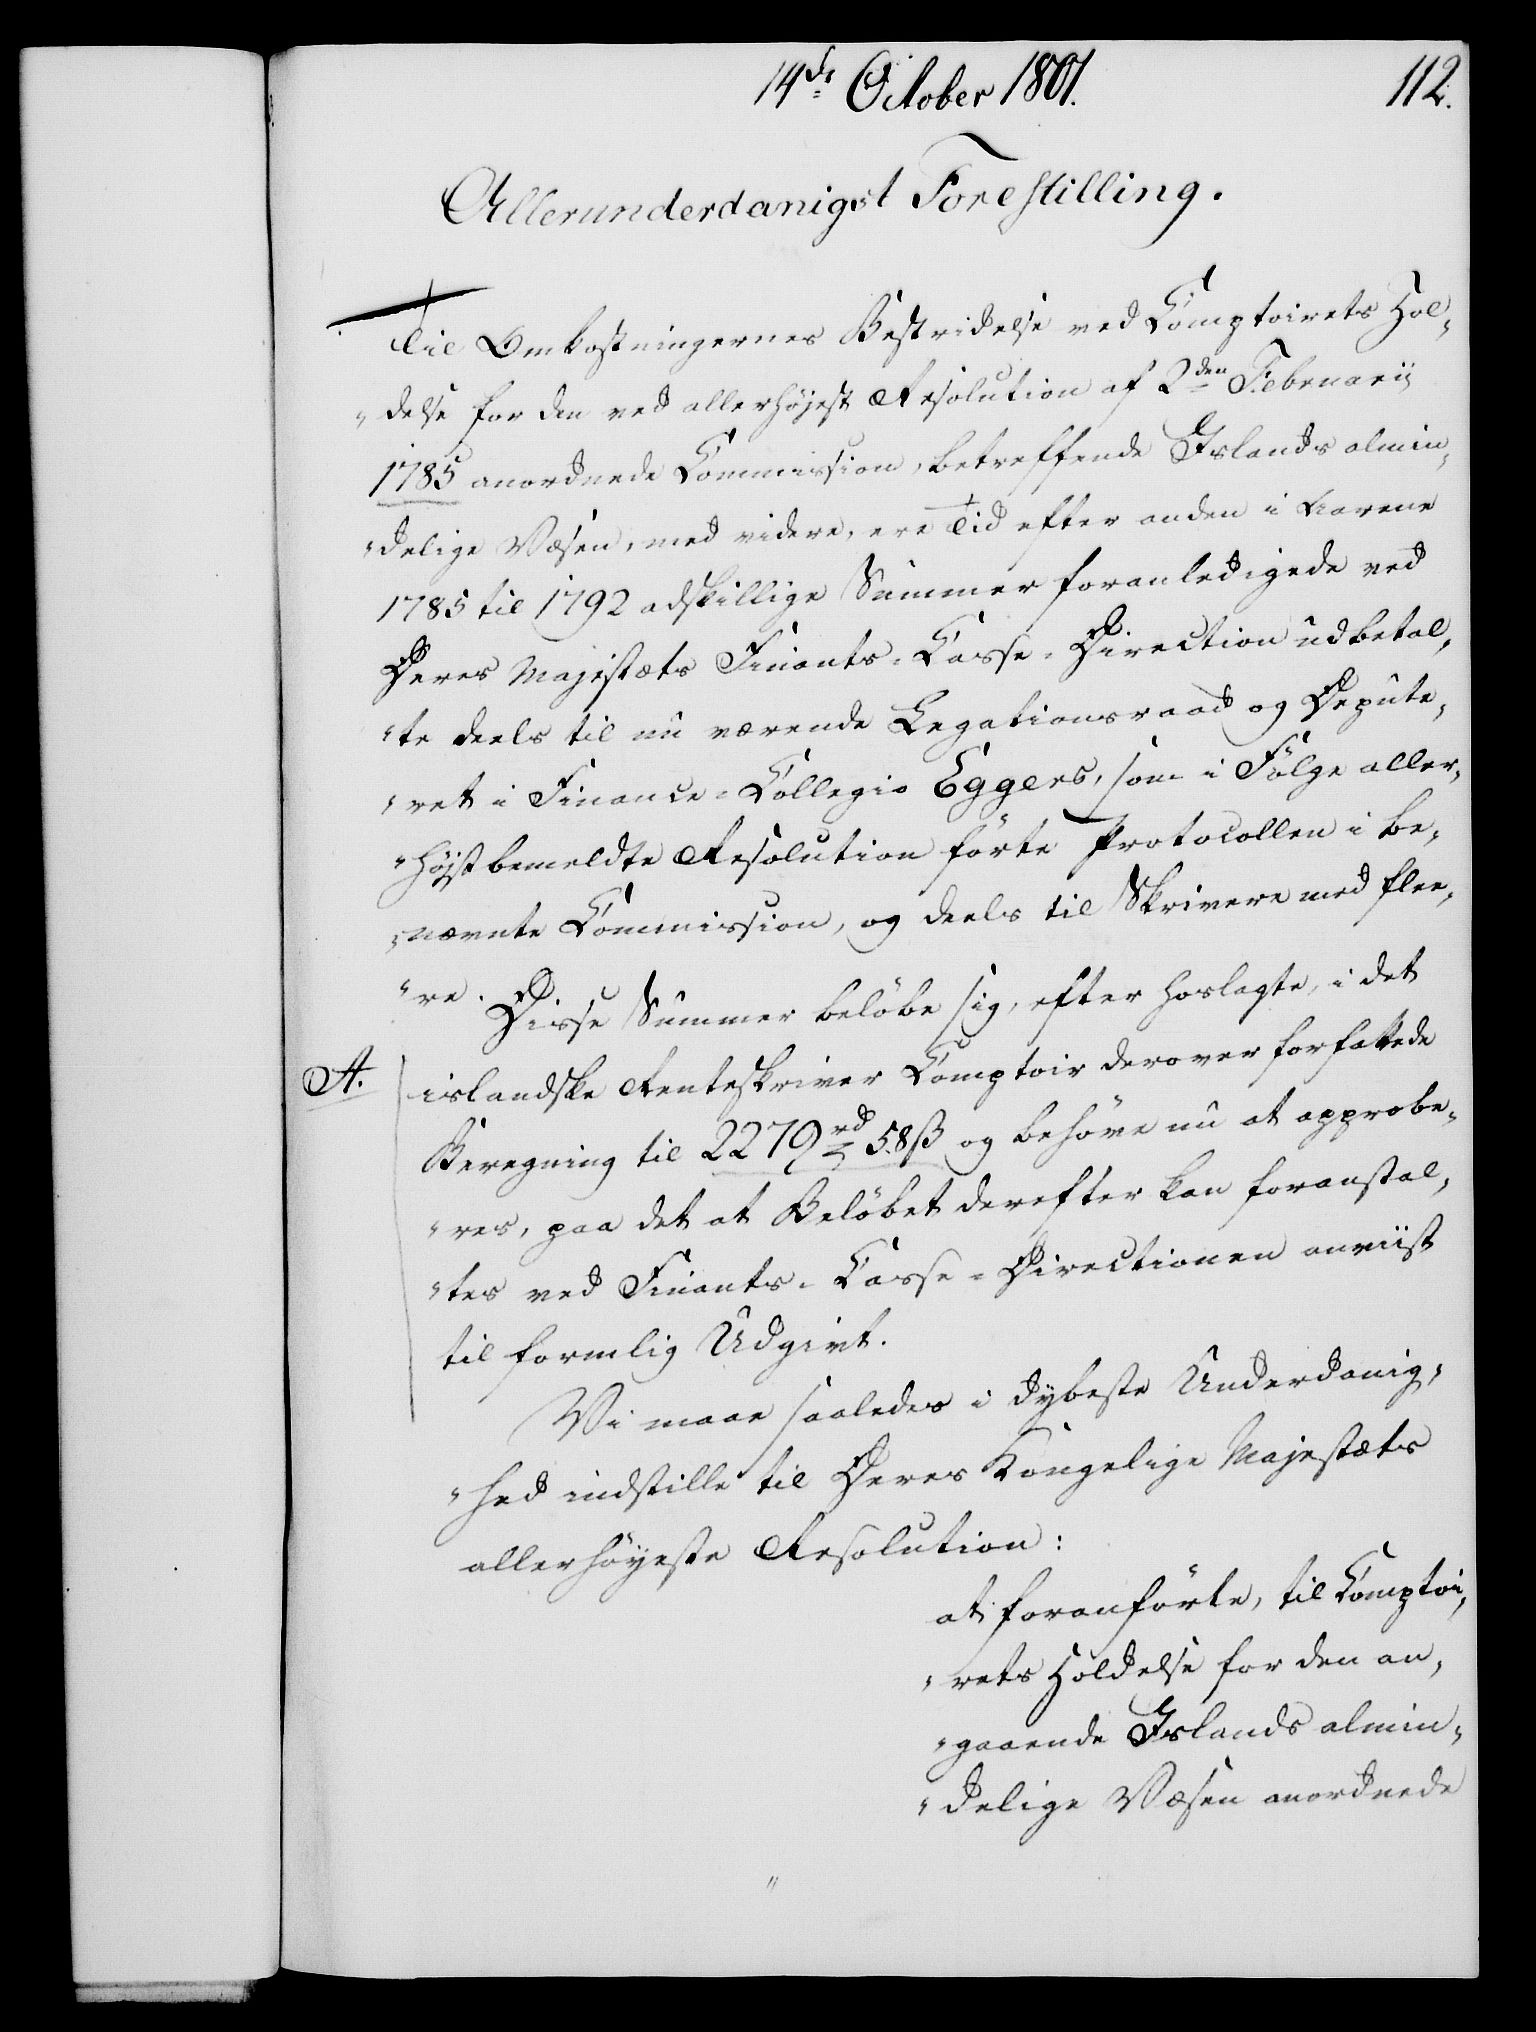 14de October 1801.
112.
Allerunderdanigst Forestilling.
Til Omkostningernes Bestridelse ved Comptoirets Hol„
„delse for den ved allerhöjest Resolution af 2den Februarii
1785 anordnede Commission, betreffende Islands almin„
„delige Væsen, med videre, ere Tid efter anden i Aarene
1785 til 1792 adskillige Summer foranledigede ved
Deres Majestæts Finants-Casse-Direction udbetal„
„te deels til nu værende Legationsraad og Depute„
„ret i Finance-Collegio Eggers, som i Fölge aller„
„höjstbemeldte Resolution förte Protocollen i be„
„nævnte Commission, og deels til Skrivere med flee„
„re. Disse Summer belöbe sig, efter hoslagte, i det
A.
islandske Renteskriver Comptoir derover forfattede
Beregning til 2279 rd 58 ß og behöve nu at approbe„
„res, paa det at Belöbet derefter kan foranstal„
„tes ved Finants-Casse-Directionen anviist
til formlig Udgivt.
Vi maae saaledes i dybeste Underdanig„
„hed indstille til Deres Kongelige Majestæts
allerhöyeste Resolution:
at foranförte, til Comptoi„
„rets Holdelse for den an„
„gaaende Islands almin„
„delige Væsen anordnede